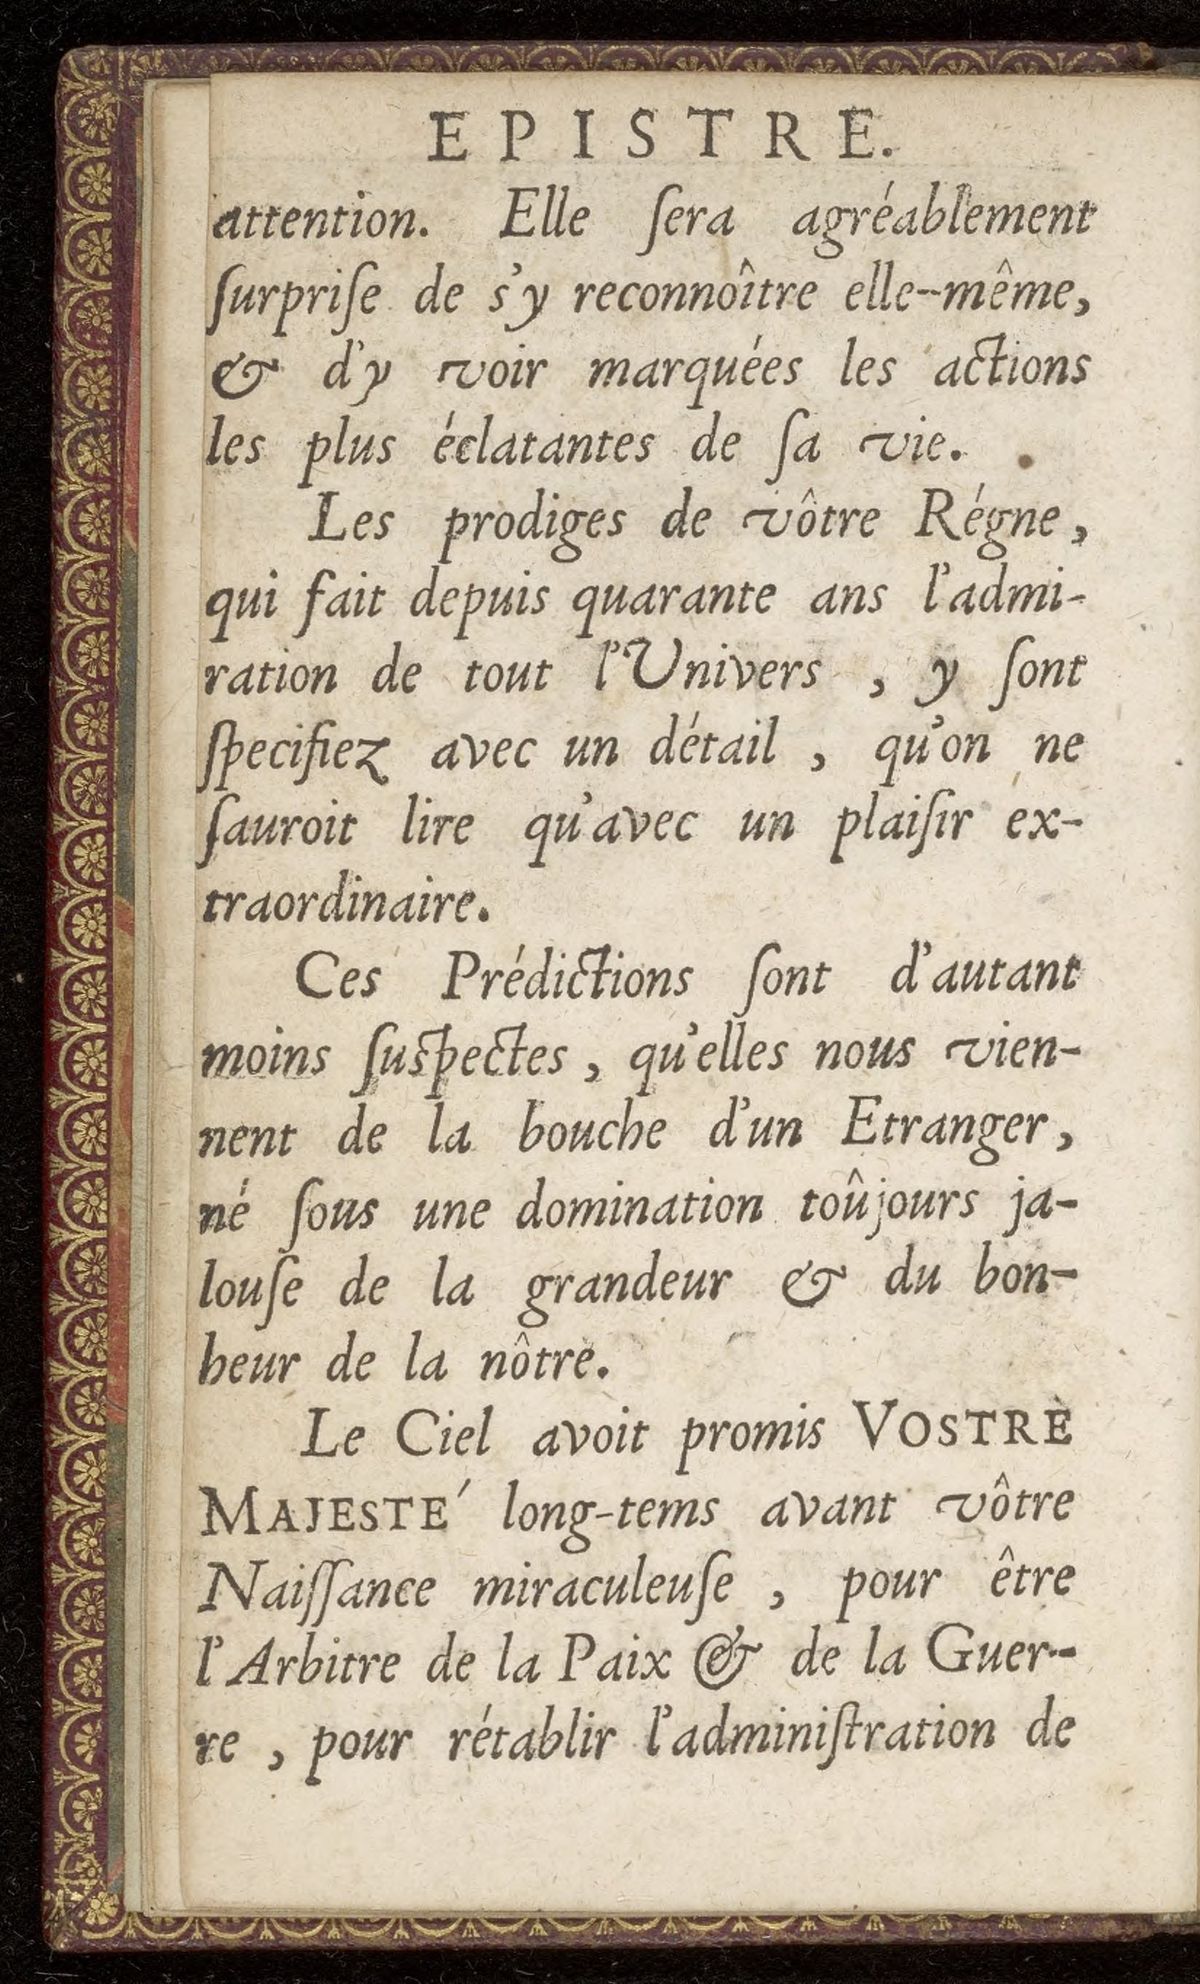 EPISTRE.
attention. Elle ſera agréablement
ſurpriſe de s'y reconnoître elle--même,
& d'y voir marquées les actions
les plus éclatantes de ſa vie.
Les prodiges de vôtre Régne,
qui fait depuis quarante ans l'admi-
ration de tout l'Univers, y ſont
ſpecifiez avec un détail, qu'on ne
ſauroit lire qu'avec un plaiſir ex-
traordinaire.
Ces Prédictions ſont d'autant
moins ſuſpectes, qu'elles nous vien-
nent de la bouche d'un Etranger,
né ſous une domination toûjours ja-
louſe de la grandeur & du bon-
heur de la nôtre.
Le Ciel avoit promis VOSTRE
MAJESTE' long-tems avant vôtre
Naiſſance miraculeuſe, pour être
l'Arbitre de la Paix & de la Guer-
re, pour rétablir l'adminiſtration de